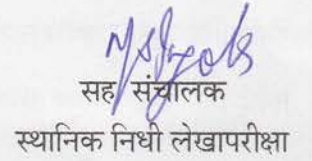 सह संचालक
स्थानिक निधी लेखापरीक्षा